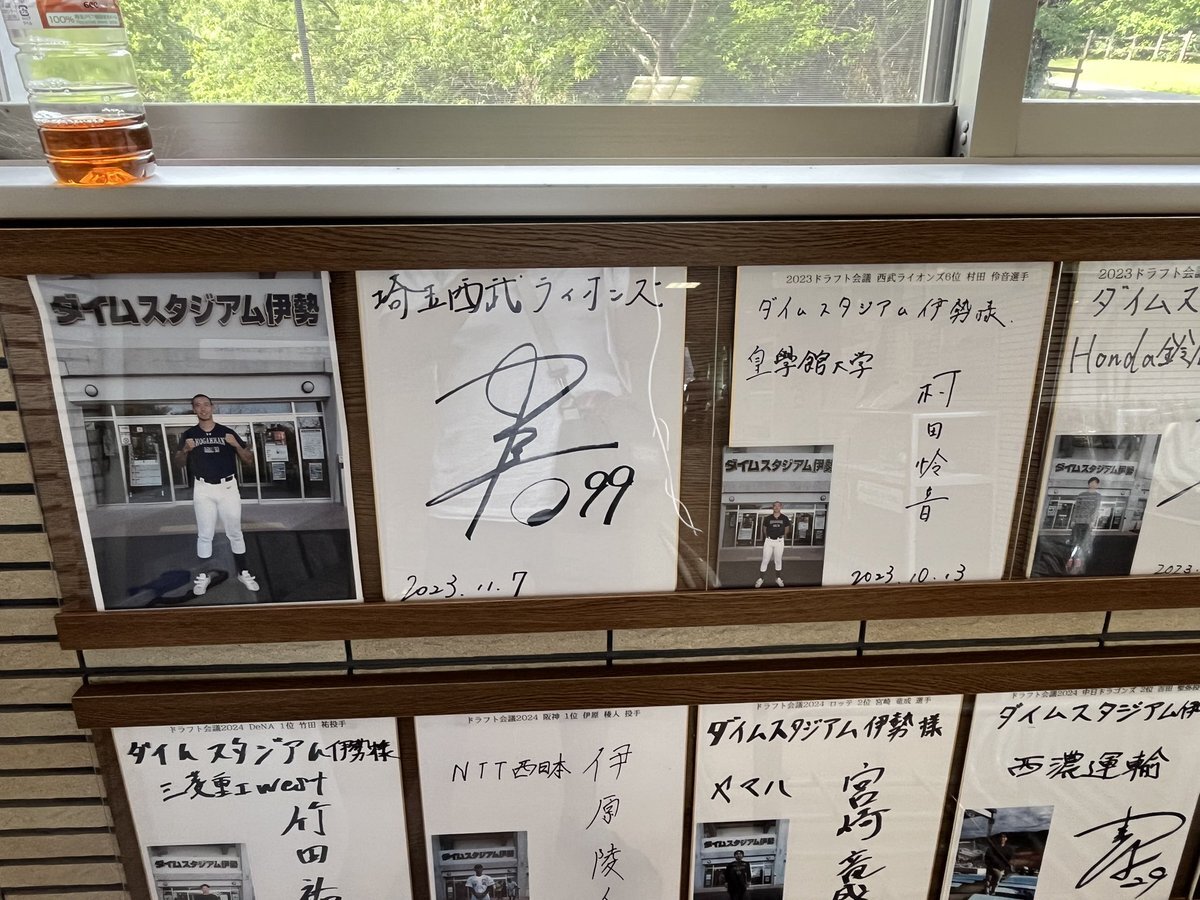 100%
ダイムスタジアム伊勢
KOGAKKAN
埼玉西武ライオンズ
99
2023.11.7
2023ドラフト会議 西武ライオンズ6位 村田 怜音選手
ダイムスタジアム伊勢様
皇學館大学
村田怜音
ダイムスタジアム伊勢
2023.10.13
2023ドラフト会議
ダイムス
Honda鈴
ダイムスタジアム伊勢
2023.
ドラフト会議2024 DeNA 1位 竹田 祐投手
ダイムスタジアム伊勢様
三菱重工West
竹田祐
ダイムスタジアム伊勢
ドラフト会議2024 阪神 1位 伊原 稜人 投手
NTT西日本
伊原陵
ダイムスタジアム伊勢
ドラフト会議2024 ロッテ 2位 宮崎 竜成 選手
ダイムスタジアム伊勢様
ヤマハ
宮崎竜成
ダイムスタジアム伊勢
ドラフト会議2024 中日ドラゴンズ 2位 吉田 聖弥投
ダイムスタジアム伊
西濃運輸
29